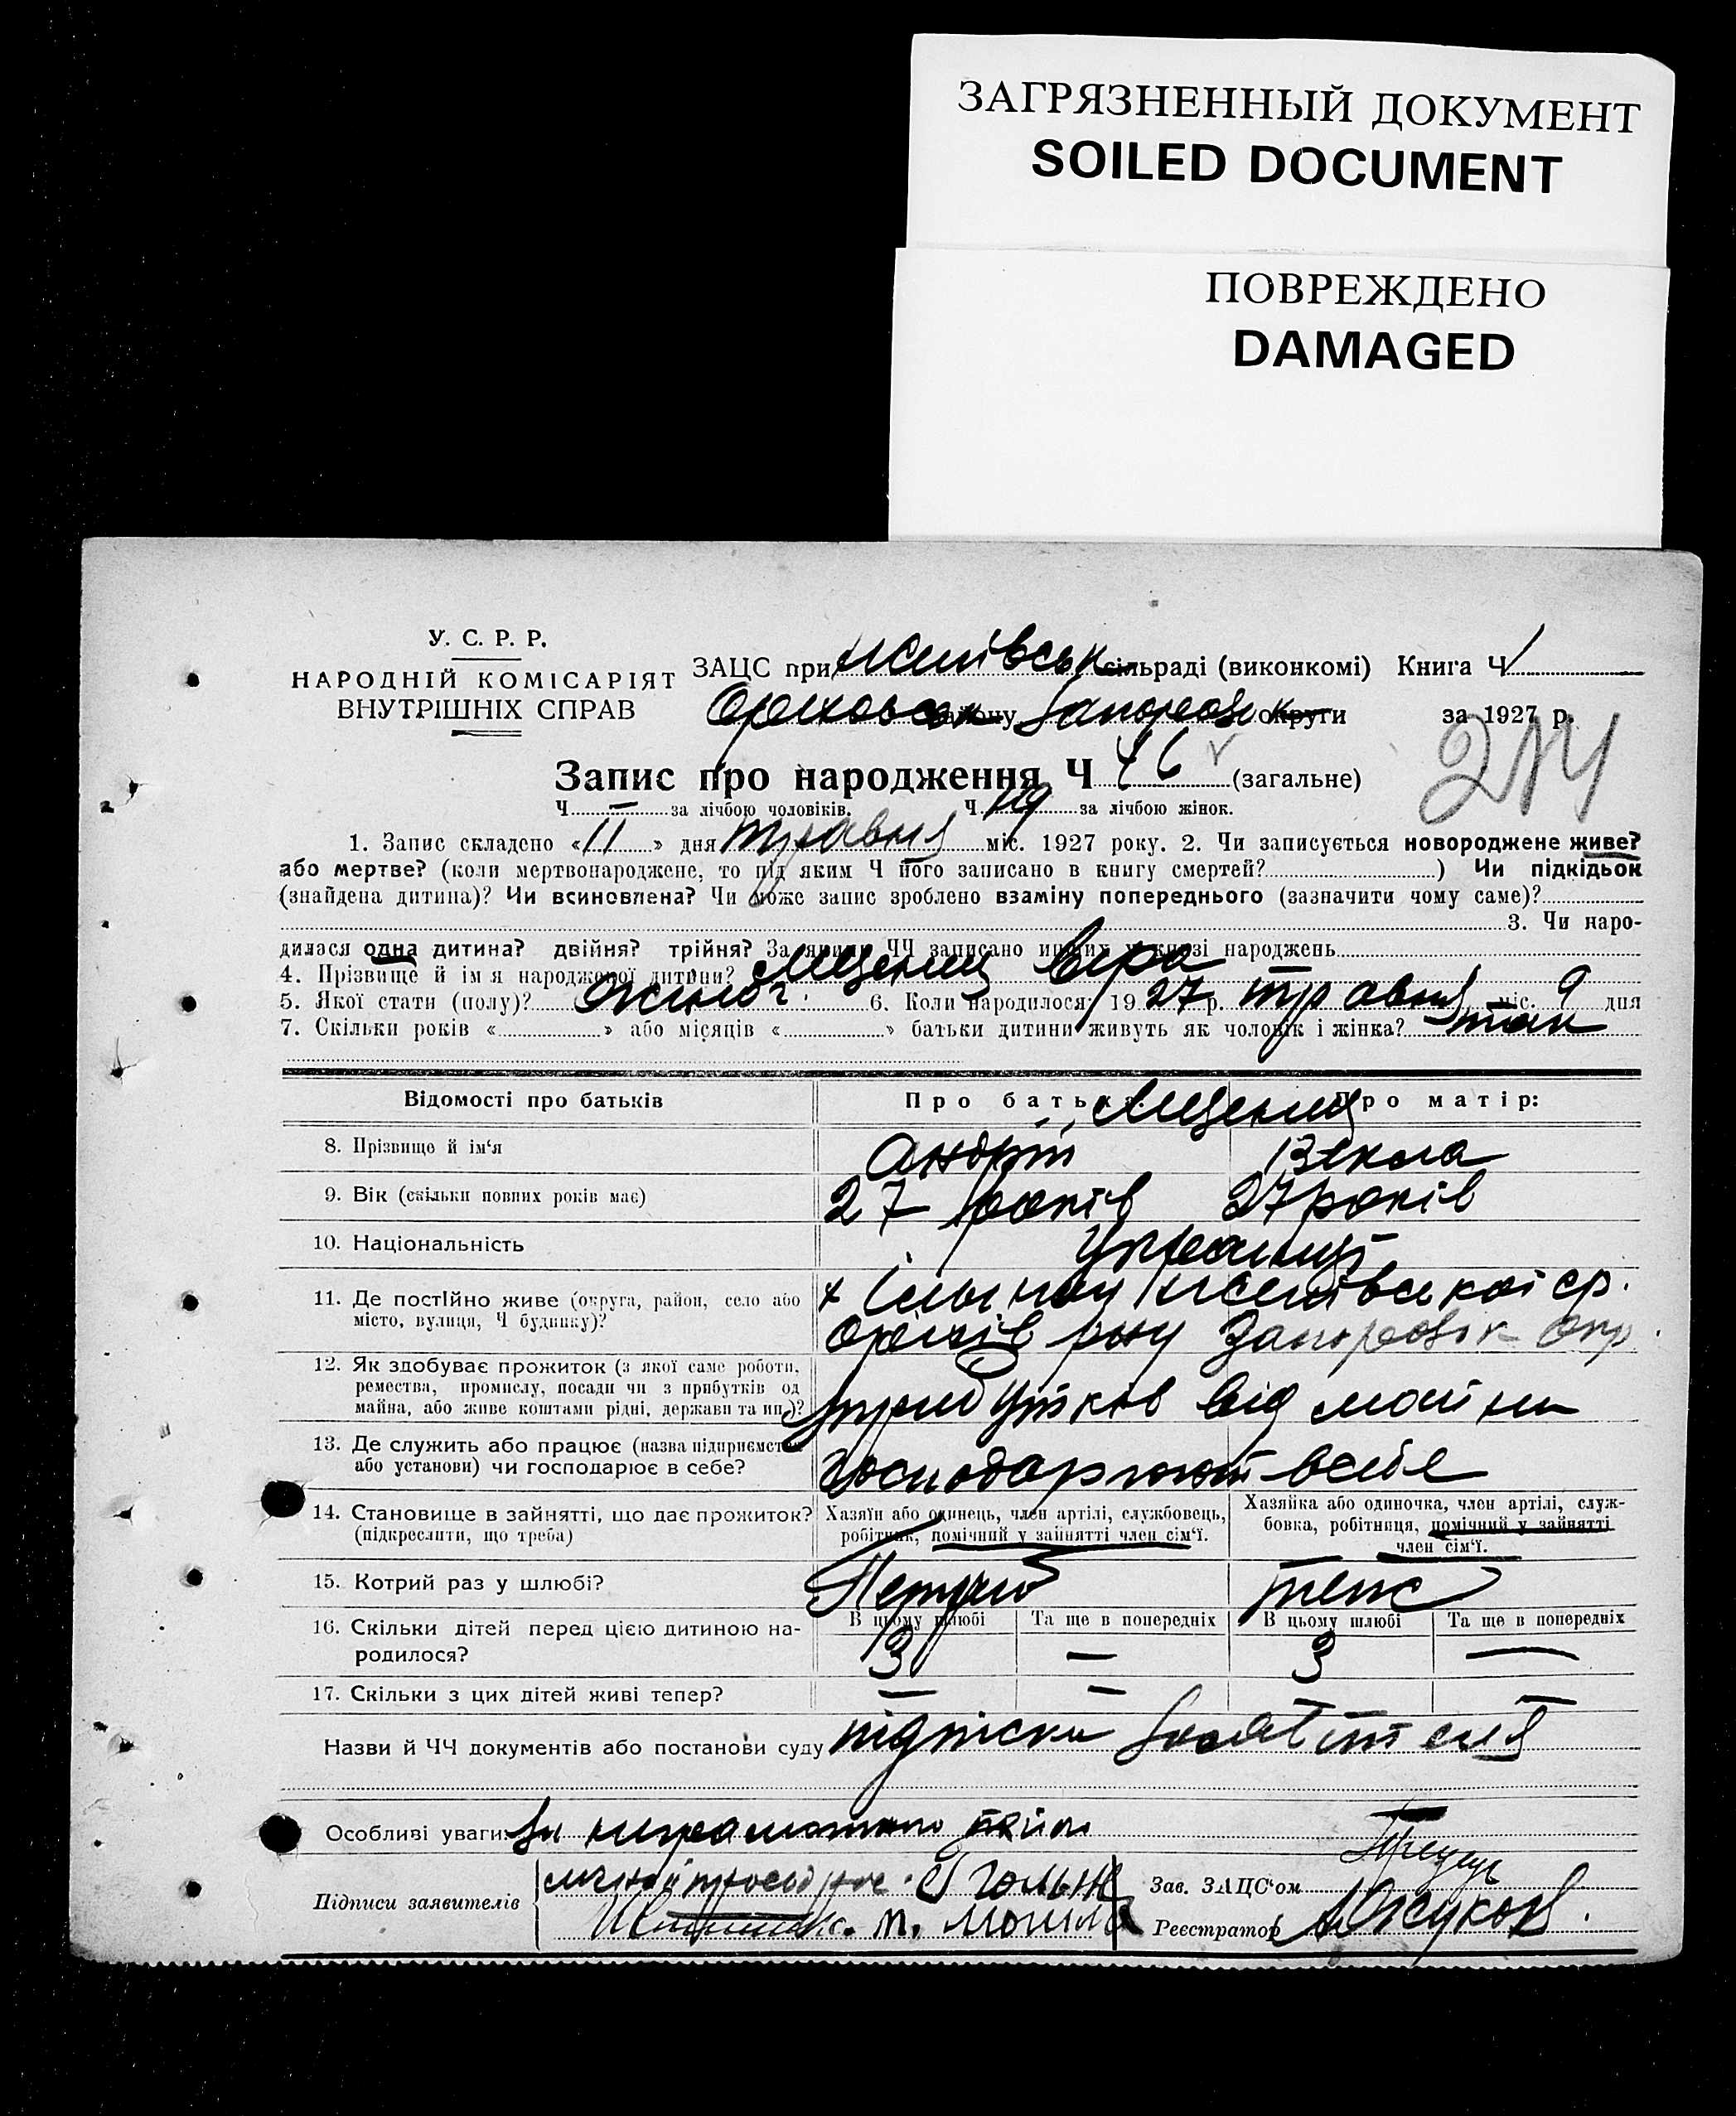 ЗАГРЯЗНЕННЫЙ ДОКУМЕНТ
SOILED DOCUMENT
ПОВРЕЖДЕНО
DAMAGED
У. С. Р. Р.
НАРОДНІЙ КОМІСАРІЯТ
ВНУТРІШНІХ СПРАВ
ЗАЦС при сільраді (виконкомі) Книга Ч 1
Ореховськ району Запорозьк округи за 1927 р.
214
Запис про народження Ч 46 (загальне)
Ч — за лічбою чоловіків. Ч 19 за лічбою жінок.
1. Запис складено «11» дня травня міс. 1927 року. 2. Чи записується новороджене живе?
або мертве? (коли мертвонароджене, то під яким Ч його записано в книгу смертей? ) Чи підкідьок
(знайдена дитина)? Чи всиновлена? Чи може запис зроблено взаміну попереднього (зазначити чому саме)?
3. Чи наро-
дилася одна дитина? двійня? трійня? За якими ЧЧ записано инших у книзі народжень
4. Прізвище й ім'я народженої дитини? Віра
5. Якої стати (полу)? жіноч. 6. Коли народилося? 1927 р. травня міс. 9 дня
7. Скільки років « » або місяців « » батьки дитини живуть як чоловік і жінка? так
Відомості про батьків Про батька: Про матір:
8. Прізвище й ім'я Андрій Векла
9. Вік (скільки повних років має) 27 років 27 років
10. Національність Українці
11. Де постійно живе (округа, район, село або
місто, вулиця, Ч будинку)?
Оріхів р-ну Запорозьк окр.
12. Як здобуває прожиток (з якої саме роботи,
ремества, промислу, посади чи з прибутків од
майна, або живе коштами рідні, держави та ин.)? прибутків від майна
13. Де служить або працює (назва підприємства
або установи) чи господарює в себе? господарюють в себе
14. Становище в зайнятті, що дає прожиток?
(підкреслити, що треба)
Хазяїн або одинець, член артілі, службовець,
робітник, помічний у зайнятті член сім'ї.
Хазяйка або одиночка, член артілі, служ-
бовка, робітниця, помічний у зайнятті
член сім'ї.
15. Котрий раз у шлюбі? Перший теж
16. Скільки дітей перед цією дитиною на-
родилося?
В цьому шлюбі Та ще в попередніх В цьому шлюбі Та ще в попередніх
3 — 3 —
17. Скільки з цих дітей живі тепер? — — —
Назви й ЧЧ документів або постанови суду підписка заявителя
Особливі уваги:
Підписи заявителів
Зав. ЗАЦС'ом
Реєстратор Жуков.